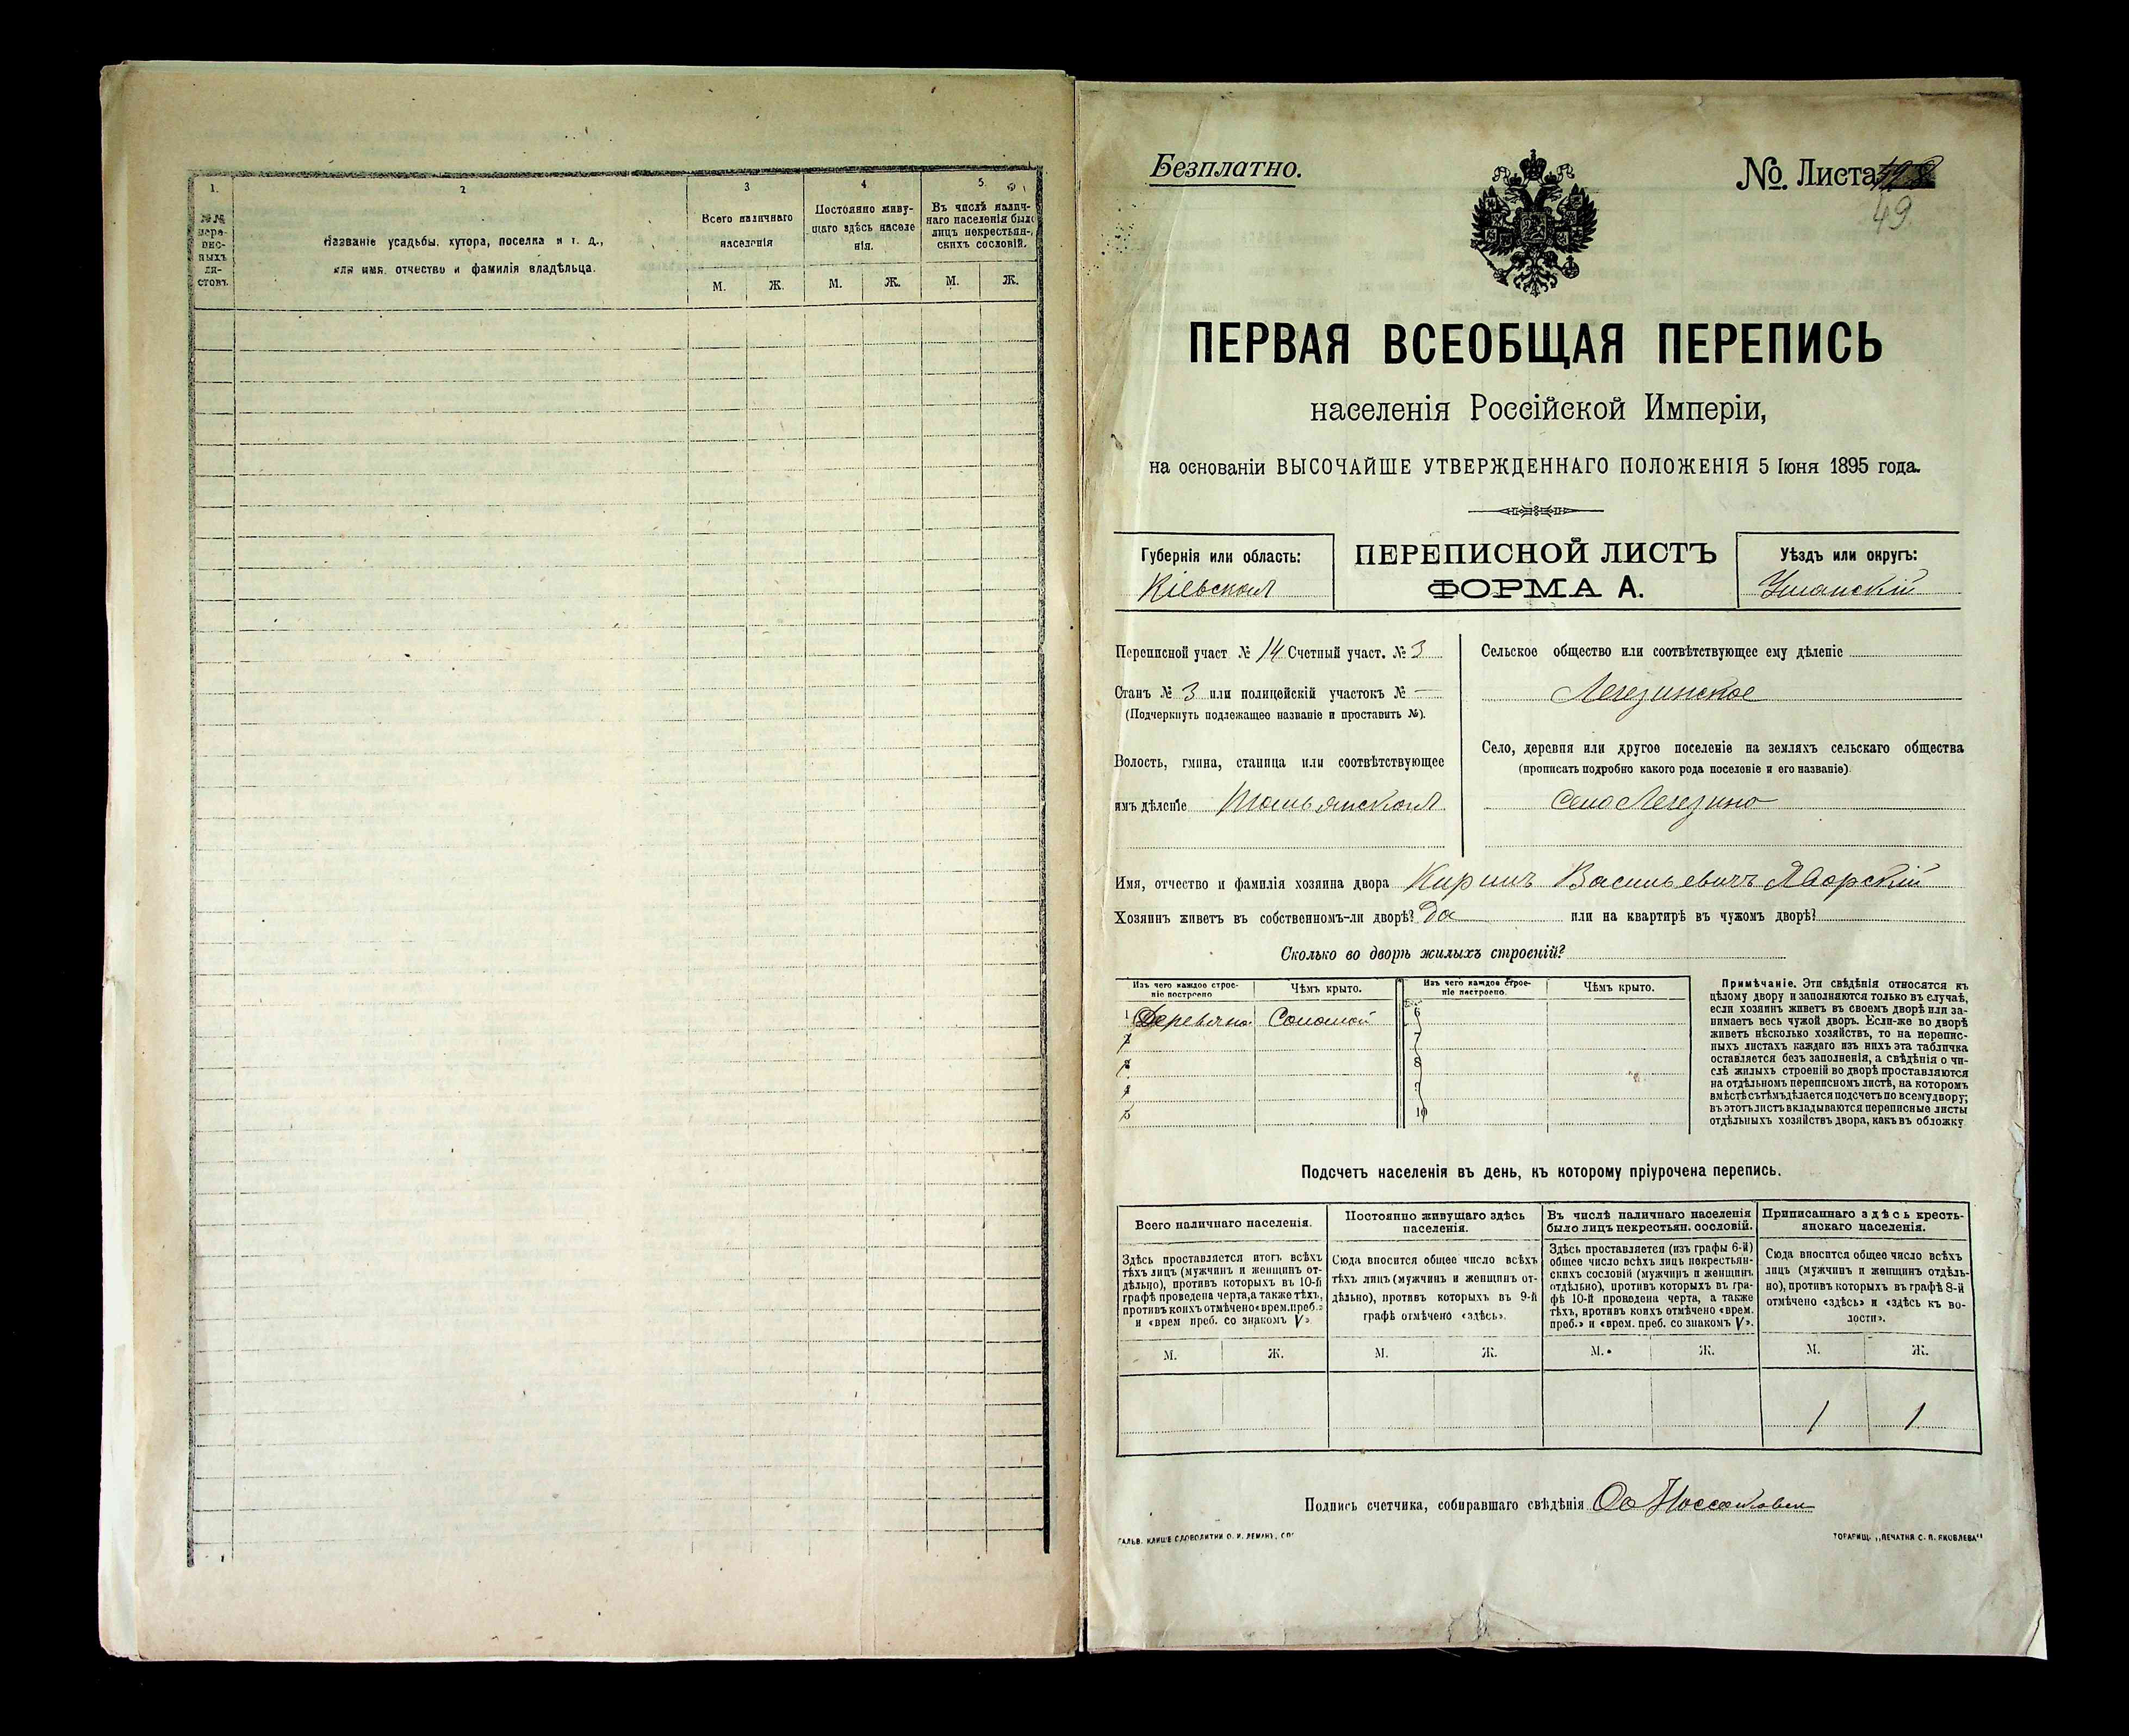 1.
2
3
4.
5.
№№ пере-
пис-
ныхъ
ли-
стовъ.
Названіе усадьбы, хутора, поселка и т. д.,
или имя, отчество и фамилія владѣльца.
Всего наличнаго
населенія
Постоянно живу-
щаго здѣсь населе
нія.
Въ числѣ налич-
наго населенія было
лицъ некрестьян-
скихъ сословій.
М. Ж. М. Ж. М. Ж.
Безплатно.
№. Листа
49.
ПЕРВАЯ ВСЕОБЩАЯ ПЕРЕПИСЬ
населенія Россійской Имперіи,
на основаніи ВЫСОЧАЙШЕ УТВЕРЖДЕННАГО ПОЛОЖЕНІЯ 5 Іюня 1895 года.
Губернія или область:
Кіевская
ПЕРЕПИСНОЙ ЛИСТЪ
ФОРМА А.
Уѣздъ или округъ:
Уманскій
Переписной участ № 14 Счетный участ. № 3
Станъ № 3 или полицейскій участокъ № —
(Подчеркнуть подлежащее названіе и проставить №).
Волость, гмина, станица или соотвѣтствующее
имъ дѣленіе Тальянская
Сельское общество или соотвѣтствующее ему дѣленіе
Легезинское
Село, деревня или другое поселеніе на земляхъ сельскаго общества
(прописать подробно какого рода поселеніе и его названіе).
Село Легезино
Имя, отчество и фамилія хозяина двора Кирилъ Васильевичъ Яворскій
Хозяинъ живетъ въ собственномъ-ли дворѣ? Да или на квартирѣ въ чужомъ дворѣ?
Сколько во дворѣ жилыхъ строеній?
Изъ чего каждое строе-
ніе построено
Чѣмъ крыто.
Изъ чего каждое строе-
ніе построено.
Чѣмъ крыто.
1 Деревяно Соломой 6
2 7
3 8
4 9
5 10
Примѣчаніе. Эти свѣдѣнія относятся къ
цѣлому двору и заполняются только въ случаѣ,
если хозяинъ живетъ въ своемъ дворѣ или за-
нимаетъ весь чужой дворъ. Если-же во дворѣ
живетъ нѣсколько хозяйствъ, то на перепис-
ныхъ листахъ каждаго изъ нихъ эта табличка
оставляется безъ заполненія, а свѣдѣнія о чи-
слѣ жилыхъ строеній во дворѣ проставляются
на отдѣльномъ переписномъ листѣ, на которомъ
вмѣстѣ съ тѣмъ дѣлается подсчетъ по всему двору;
въ этотъ листъ вкладываются переписные листы
отдѣльныхъ хозяйствъ двора, какъ въ обложку
Подсчетъ населенія въ день, къ которому пріурочена перепись.
Всего наличнаго населенія.
Здѣсь проставляется итогъ всѣхъ
тѣхъ лицъ (мужчинъ и женщинъ от-
дѣльно), противъ которыхъ въ 10-й
графѣ проведена черта, а также тѣхъ,
противъ коихъ отмѣчено «врем. преб.»
и «врем преб. со знакомъ V».
Постоянно живущаго здѣсь
населенія.
Сюда вносится общее число всѣхъ
тѣхъ лицъ (мужчинъ и женщинъ от-
дѣльно), противъ которыхъ въ 9-й
графѣ отмѣчено «здѣсь».
Въ числѣ наличнаго населенія
было лицъ некрестьян. сословій.
Здѣсь проставляется (изъ графы 6-й)
общее число всѣхъ лицъ некрестьян-
скихъ сословій (мужчинъ и женщинъ
отдѣльно), противъ которыхъ въ гра-
фѣ 10-й проведена черта, а также
тѣхъ, противъ коихъ отмѣчено «врем.
преб.» и «врем. преб. со знакомъ V».
Приписаннаго здѣсь кресть-
янскаго населенія.
Сюда вносится общее число всѣхъ
лицъ (мужчинъ и женщинъ отдѣль-
но), противъ которыхъ въ графѣ 8-й
отмѣчено «здѣсь» и «здѣсь къ во-
лости».
М. Ж. М. Ж. М. Ж. М. Ж.
1 1
Подпись счетчика, собиравшаго свѣдѣнія
ГАЛЬВ. КЛИШЕ СЛОВОЛИТНИ О. И. ЛЕМАНЪ, СПб
ТОВАРИЩ. „ПЕЧАТНЯ С. П. ЯКОВЛЕВА"